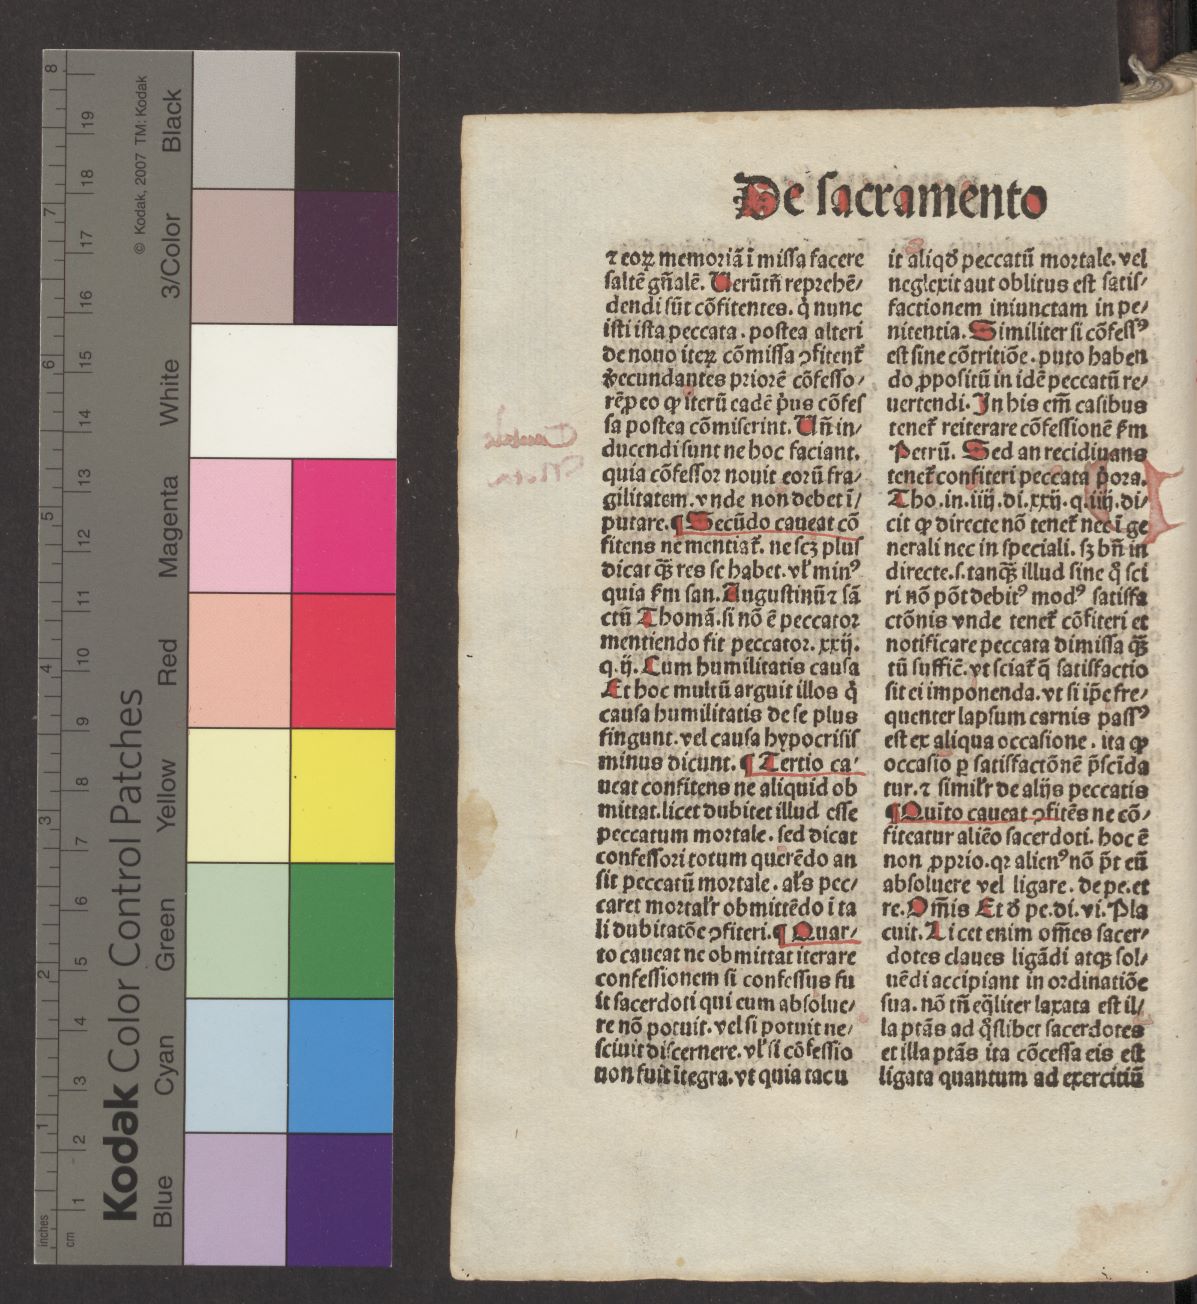 De sacramento
⁊ eoꝝ memoriā ī missa facere
saltē gn̄alē. Uerūtn̄ reprehē/
dendi sūt cōfitentes. q̇ nunc
isti ista peccata. postea alteri
de nouo iteꝝ cōmissa ꝯfitent᷑
fecundantes priorē cōfesso/
rē ꝑ eo ꝙ iterū eadē pͥus cōfes
sa postea cōmiserint. Un̄ in/
ducendi sunt ne hoc faciant.
quia cōfessor nouit eorū fra/
gilitatem. vnde non debet ī/
putare. ¶ Secūdo caueat cō
fitens ne mentiat᷑. ne scꝫ plus
dicat q̄ꝫ res se habet. vl̓ minꝰ
quia ẜm san. Augustinū ⁊ sā
ctū Thomā. si nō ē peccator
mentiendo fit peccator. xxij.
q. ij. Cum humilitatis causa
Et hoc multū arguit illos q̇
causa humilitatis de se plus
fingunt. vel causa hypocrisis
minus dicunt. ¶ Tertio ca/
ueat confitens ne aliquid ob
mittat. licet dubitet illud esse
peccatum mortale. sed dicat
confessori totum querēdo an
sit peccatū mortale. al̓s pec/
caret mortal̓r obmittēdo ī ta
li dubitatōe ꝯfiteri. ¶ Quar/
to caueat ne obmittat iterare
confessionem si confessus fu
it sacerdoti qui eum absolue/
re nō potuit. vel si potuit ne/
sciuit discernere. vl̓ si cōfessio
non fuit ītegra. vt quia tacu
it aliqd̓ peccatū mortale. vel
neglexit aut oblitus est satis/
factionem iniunctam in pe/
nitentia. Similiter si cōfessꝰ
est sine cōtritiōe. puto haben
do ꝓpositū in idē peccatū re/
uertendi. In his em̄ casibus
tenet᷑ reiterare cōfessionē ẜm
Petrū. Sed an recidiuans
tenet᷑ confiteri peccata pͥora.
Tho. in. iiij. di. xxij. q. iiij. di/
cit ꝙ directe nō tenet᷑ nec ī ge
nerali nec in speciali. sꝫ bn̄ in
directe. s. tanq̄ꝫ illud sine qͦ sci
ri nō pōt debitꝰ modꝰ satisfa
ctōnis vnde tenet᷑ cōfiteri et
notificare peccata dimissa q̄ꝫ
tū suffic̄. vt sciat᷑ q̄ satisfactio
sit ei imponenda. vt si ip̄e fre/
quenter lapsum carnis passꝰ
est ex aliqua occasione. ita ꝙ
occasio ꝑ satisfactōnē p̄scīda
tur. ⁊ simil̓r de alijs peccatis
¶ Quīto caueat ꝯfitēs ne cō/
fiteatur aliēo sacerdoti. hoc ē
non ꝓprio. qꝛ alienꝰ nō pōt eū
absoluere vel ligare. de pe. et
re. Om̄is Et d̓ pe. di. vi. Pla
cuit. Licet enim om̄es sacer/
dotes claues ligādi atqꝫ sol/
uēdi accipiant in ordinatiōe
sua. nō tn̄ eq̄liter laxata est il/
la ptās ad qͦslibet sacerdotes
et illa ptās ita cōcessa eis est
ligata quantum ad exercitiū
Kodak Color Control Patches
© Kodak, 2007 TM: Kodak
Blue Cyan Green Yellow Red Magenta White 3/Color Black
inches 1 2 3 4 5 6 7 8
cm 1 2 3 4 5 6 7 8 9 10 11 12 13 14 15 16 17 18 19